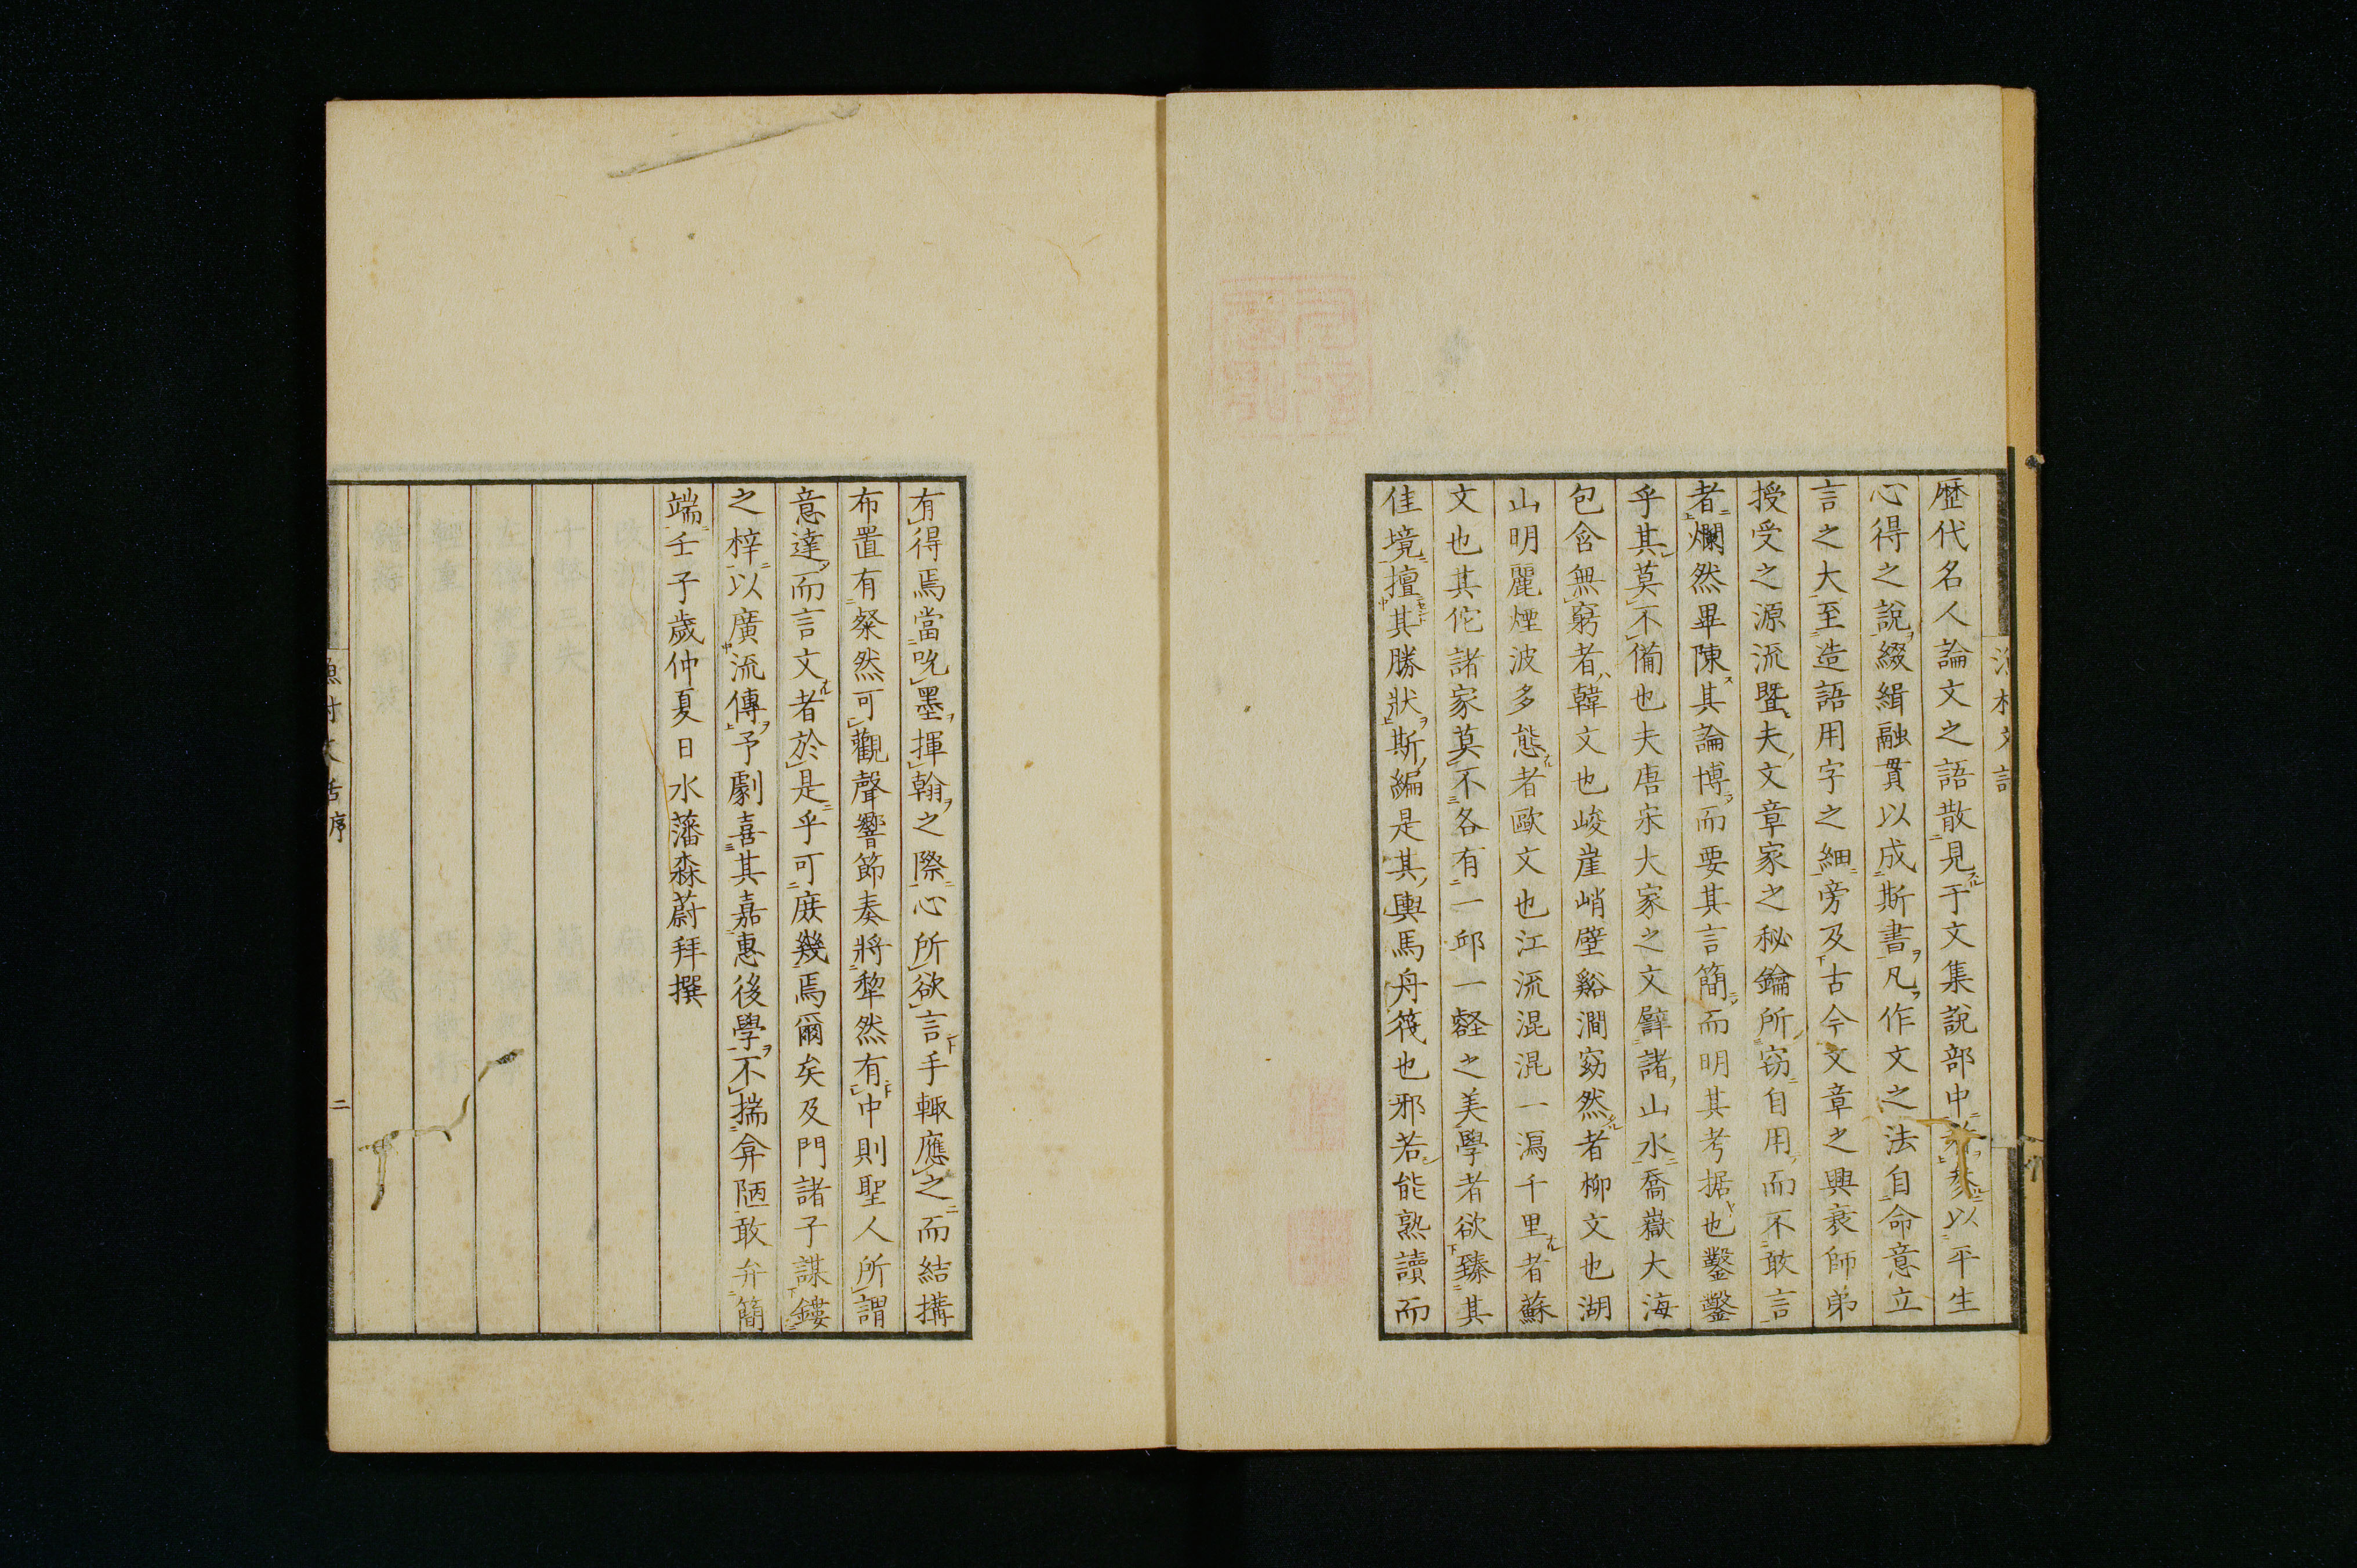 歷代名人論文之語散見于文集說部中者參以平生
心得之說綴緝融貫以成斯書凡作文之法自命意立
言之大至造語用字之細旁及古今文章之興衰師弟
授受之源流暨夫文章家之秘鑰所竊自用而不敢言
者爛然畢陳其論博而要其言簡而明其考据也鑿鑿
乎其莫不備也夫唐宋大家之文譬諸山水喬嶽大海
包含無窮者韓文也峻崖峭壁谿澗窈然者柳文也湖
山明麗煙波多態者歐文也江流混混一瀉千里者蘇
文也其佗諸家莫不各有一邱一壑之美學者欲臻其
佳境擅其勝狀斯編是其輿馬舟筏也邪若能熟讀而
有得焉當吮墨揮翰之際心所欲言手輙應之而結搆
布置有粲然可觀聲響節奏將犂然有中則聖人所謂
意達而言文者於是乎可庻幾焉爾矣及門諸子謀鏤
之梓以廣流傳予劇喜其嘉惠後學不揣弇陋敢弁簡
端壬子歲仲夏日水藩森蔚拜撰
漁村文話序
二